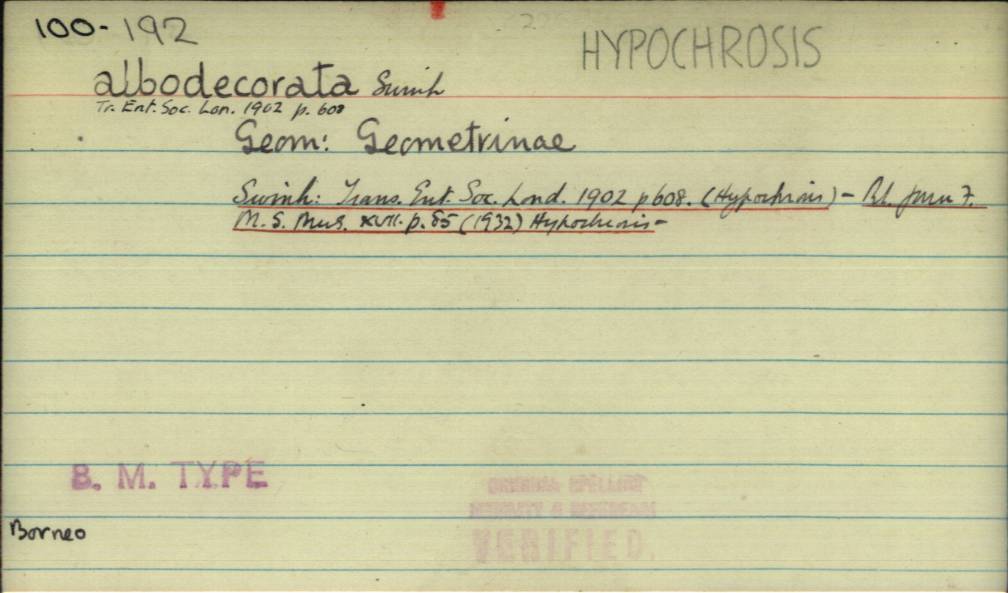 100-192
HYPOCHROSIS
albodecorata Swinh
Tr. Ent. Soc. Lon. 1902 p. 608
Geom: Geometrinae
Swinh: Trans. Ent. Soc. Lond. 1902 p 608. (Hypochrosis) –
M.S. Mus. XVII. p. 85 (1932) Hypochrosis –
B. M. TYPE
ORIGINAL SPELLING
VERIFIED.
Borneo